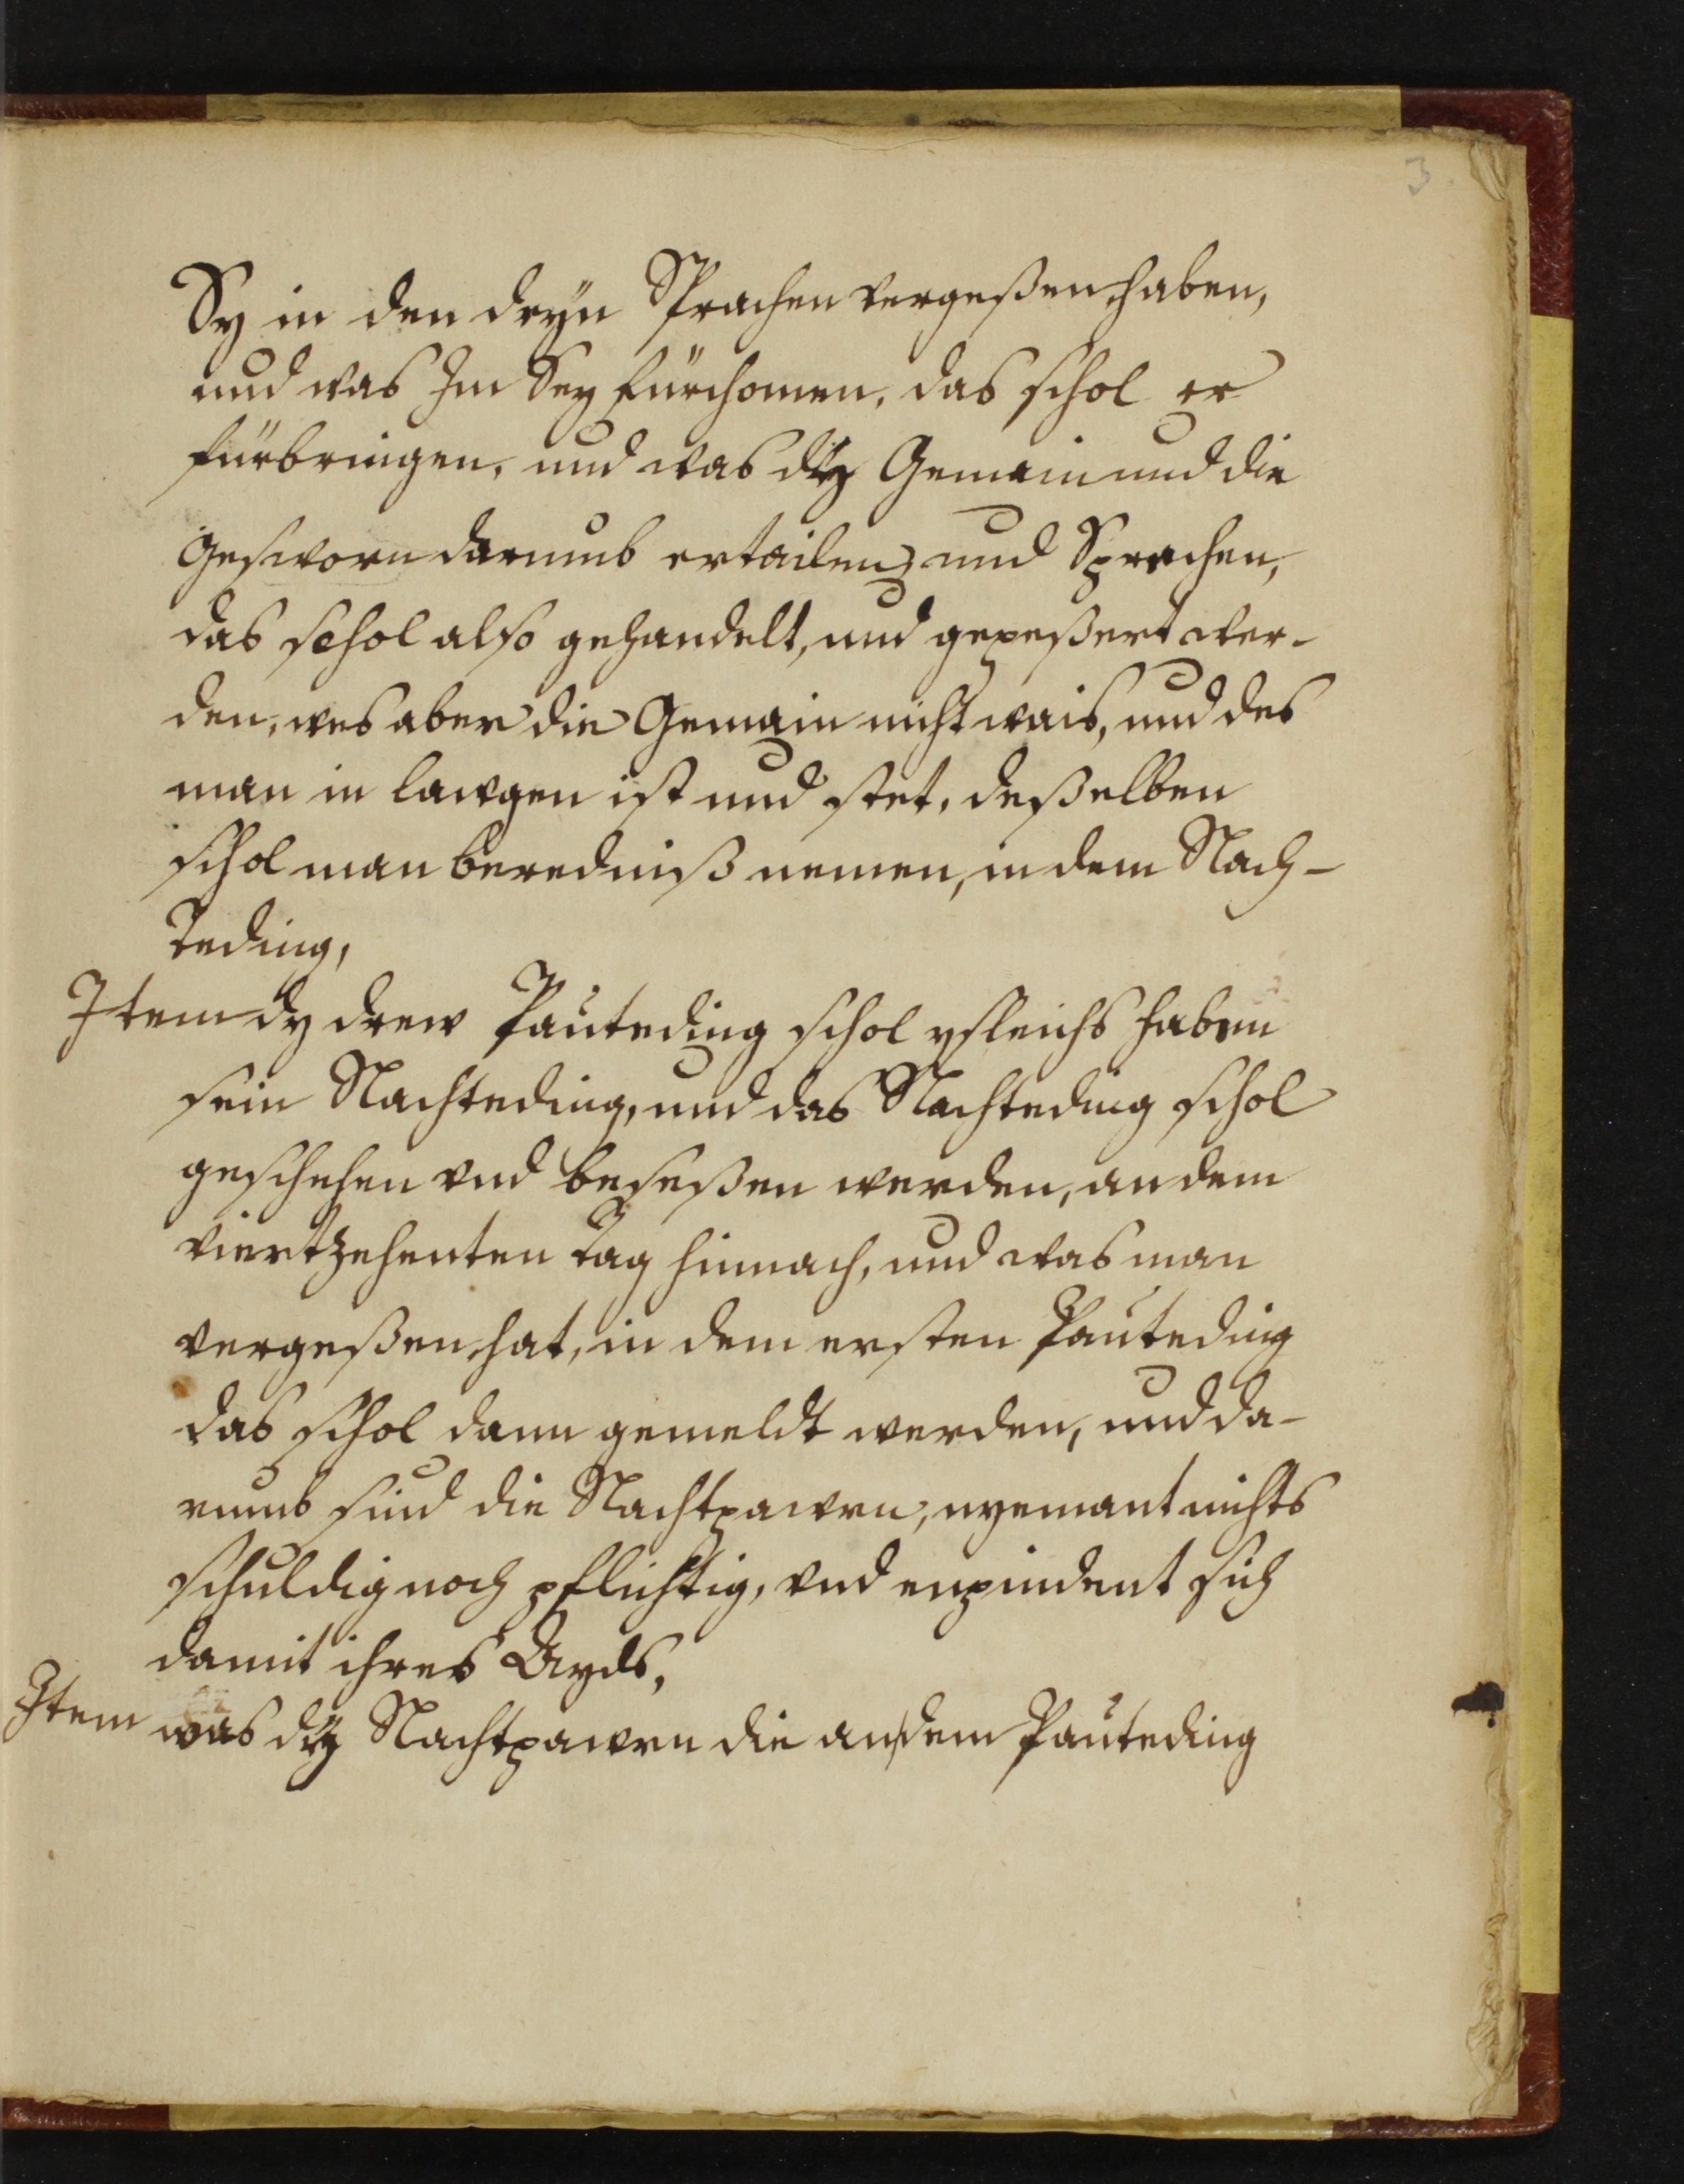 3
Sy in den dryn Sprachen vergeßen haben,
und was Im Sey fürchomen, das schol er
fürbringen, und was dÿ Gemain und die
Gesworn darumb ertailen und Sprechen,
das schol also gehandelt, und gepeßert wer-
den, wes aber die Gemain nicht wais, und des
man in lawgen ist und stet, deßelben
schol man beredniß nemen, in dem Nach-
Teding,
Item dy drew Pauteding schol ysleichs haben
sein Nachteding, und das Nachteding schol
geschehen vnd beseßen werden, an dem
viertzehenten Tag hinnach, und was man
vergeßen hat, in dem ersten Pauteding
das schol dann gemeldt werden, und da-
rumb sind die Nachtpawrn, nyemant nichts
schuldig noch pflichtig, vnd enpindent sich
damit ihres Ayds,
Item was dÿ Nachtpawrn die an dem Pauteding